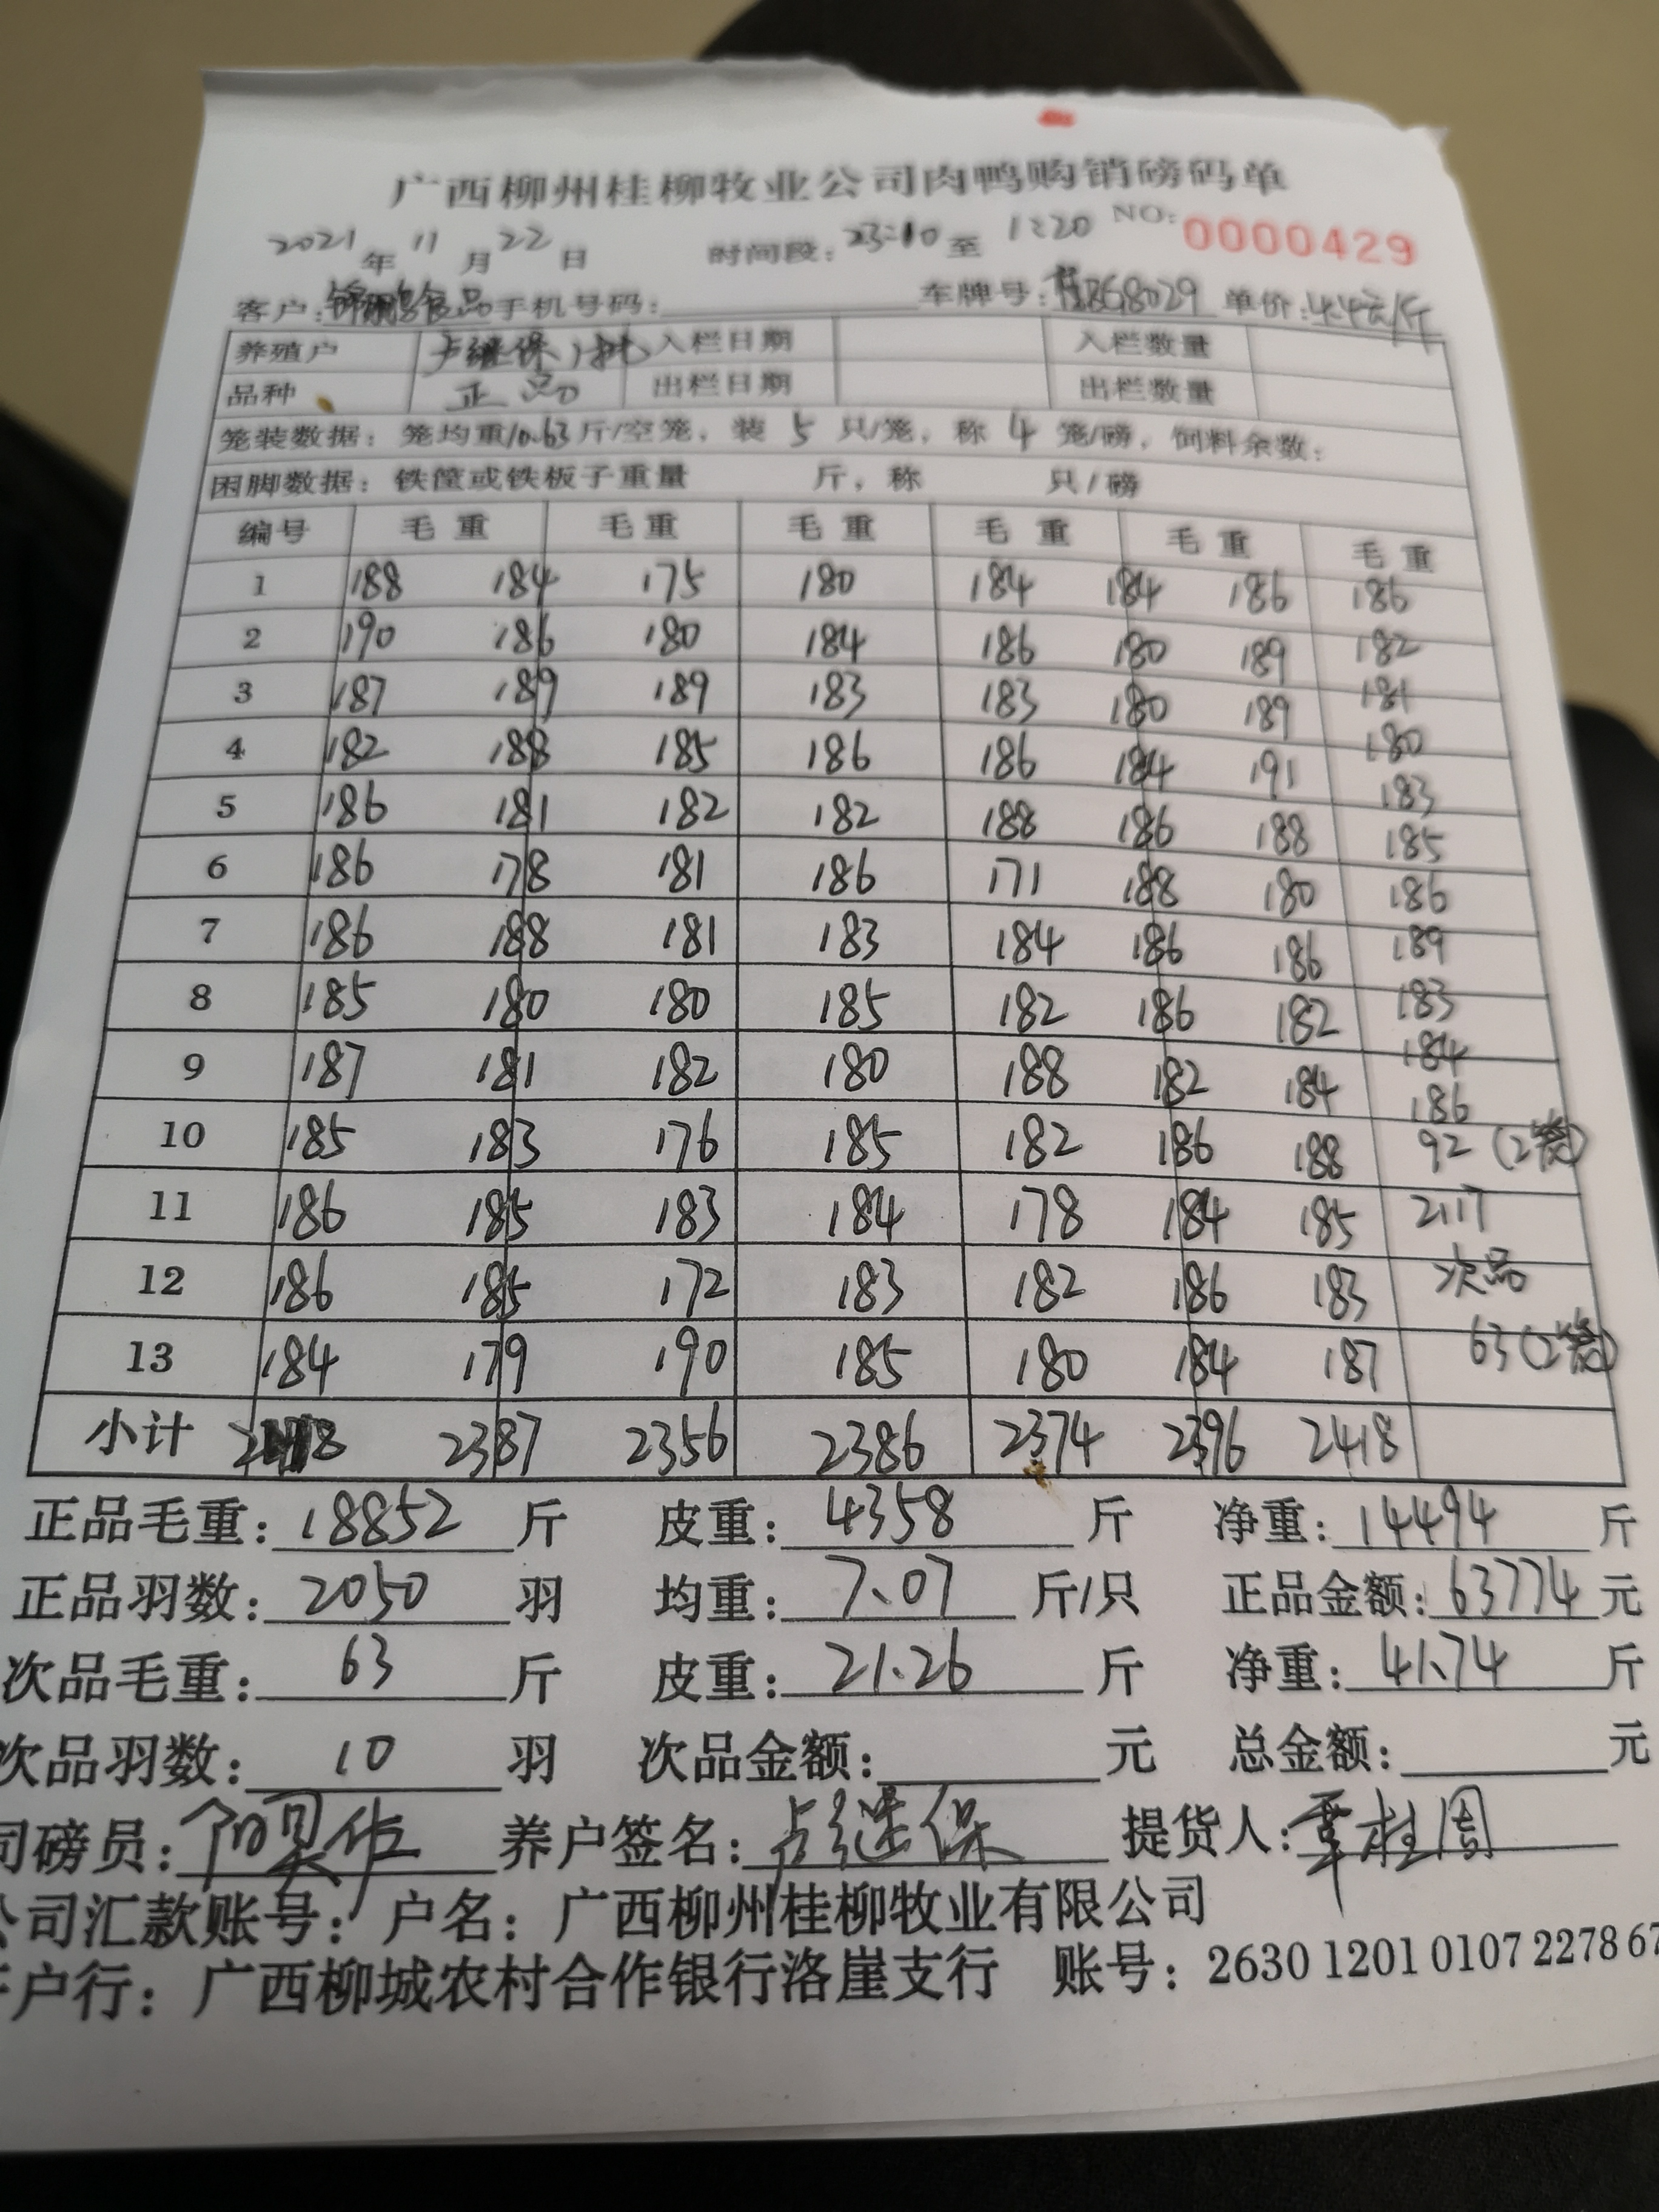 广西柳州桂柳牧业公司肉鸭购销磅码单
2021年11月22日 时间段:23:10至1:20 NO:0000429
客户:锦鹏食品 手机号码: 车牌号:桂BG8029 单价:4.4元/斤
养殖户 卢继保 1批 入栏日期 入栏数量
品种 正品 出栏日期 出栏数量
笼装数据:笼均重10.63斤/空笼,装5只/笼,称4笼/磅,饲料余数:
困脚数据:铁筐或铁板子重量 斤,称 只/磅
编号 毛重 毛重 毛重 毛重 毛重 毛重
1 188 184 175 180 184 184 186 186
2 190 186 180 184 186 180 189 182
3 187 189 189 183 183 180 189 181
4 182 188 185 186 186 184 191 180
5 186 181 182 182 188 186 188 183
6 186 178 181 186 171 188 180 185
7 186 188 181 183 184 186 186 186
8 185 180 180 185 182 186 182 189
9 187 181 182 180 188 182 184 183
10 185 183 176 185 182 186 188 184
11 186 185 183 184 178 184 185 186
12 186 185 172 183 182 186 183 92(2笼)
13 184 179 190 185 180 184 187 2117
次品
63(2笼)
小计 2387 2356 2386 2374 2396 2418
正品毛重:18852斤 皮重:4358斤 净重:14494斤
正品羽数:2050羽 均重:7.07斤/只 正品金额:63774元
次品毛重:63斤 皮重:21.26斤 净重:41.74斤
次品羽数:10羽 次品金额: 元 总金额: 元
司磅员: 养户签名:卢继保 提货人:覃桂周
公司汇款账号:户名:广西柳州桂柳牧业有限公司
开户行:广西柳城农村合作银行洛崖支行 账号:2630 1201 0107 2278 67